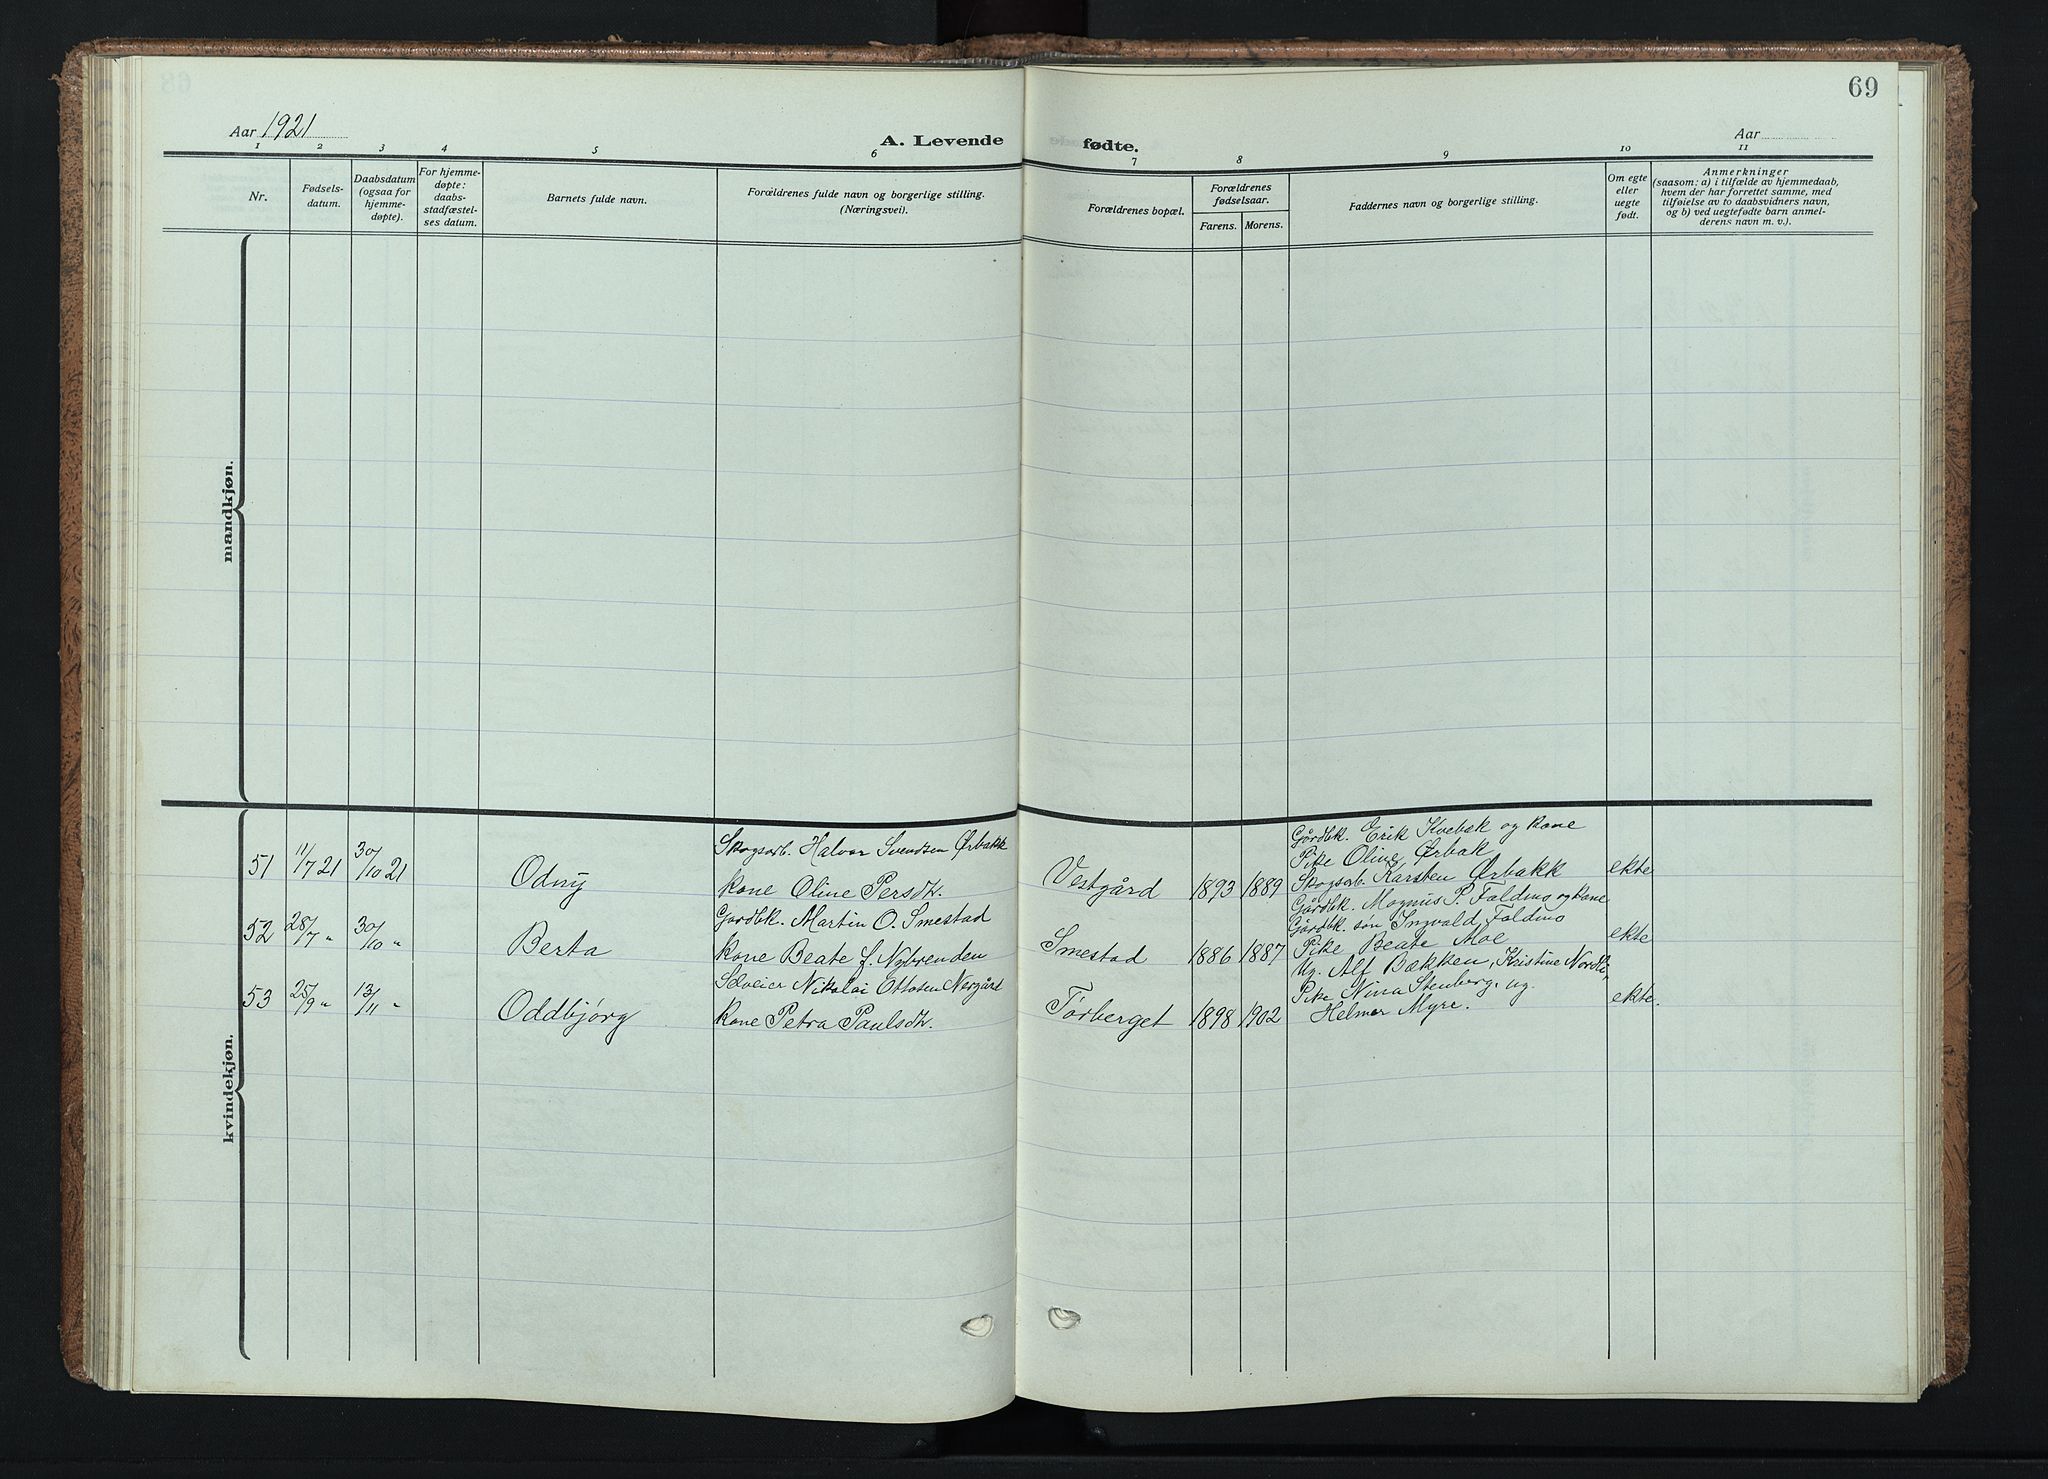 69
Aar 1921
A. Levende fødte.
Aar
1 2 3 4 5 6 7 8 9 10 11
Nr.
Fødsels-
datum.
Daabsdatum
(ogsaa for
hjemme-
døpte).
For hjemme-
døpte:
daabs-
stadfæstel-
ses datum.
Barnets fulde navn.
Forældrenes fulde navn og borgerlige stilling.
(Næringsvei).
Forældrenes bopæl.
Forældrenes
fødselsaar.
Farens. Morens.
Faddernes navn og borgerlige stilling.
Om egte
eller
uegte
født.
Anmerkninger
(saasom: a) i tilfælde av hjemmedaab,
hvem der har forrettet samme, med
tilføielse av to daabsvidners navn,
og b) ved uegtefødte barn anmel-
derens navn m. v.).
maandkjøn.
kvindekjøn.
51 11/7 21 30/10 21 Odny
Skogsarb. Halvor Svendsen Ørbakk
kone Oline Persdtr.
Vestgård 1893 1889
Gårdbk. Erik Kvebæk og kone
Pike Oline Ørbak
Skogsarb. Karsten Ørbakk
ekte
52 28/7 " 30/10 " Berta
Gårdbk. Martin O. Smestad
kone Beate f. Nybrenden
Smestad 1886 1887
Gårdbk. Magnus P. Galdmo og kone
Gårdbk. søn Ingvald Galdmo
Pike Beate Moe
ekte
53 25/9 " 13/11 " Oddbjørg
Selveier Nikolai Ottosen Nergård
kone Petra Paulsdtr.
Tørberget 1898 1902
Ug. Alf Bækken, Kristine Nordli,
Pike Nina Stenberg, ug.
Helmer Myre.
ekte.